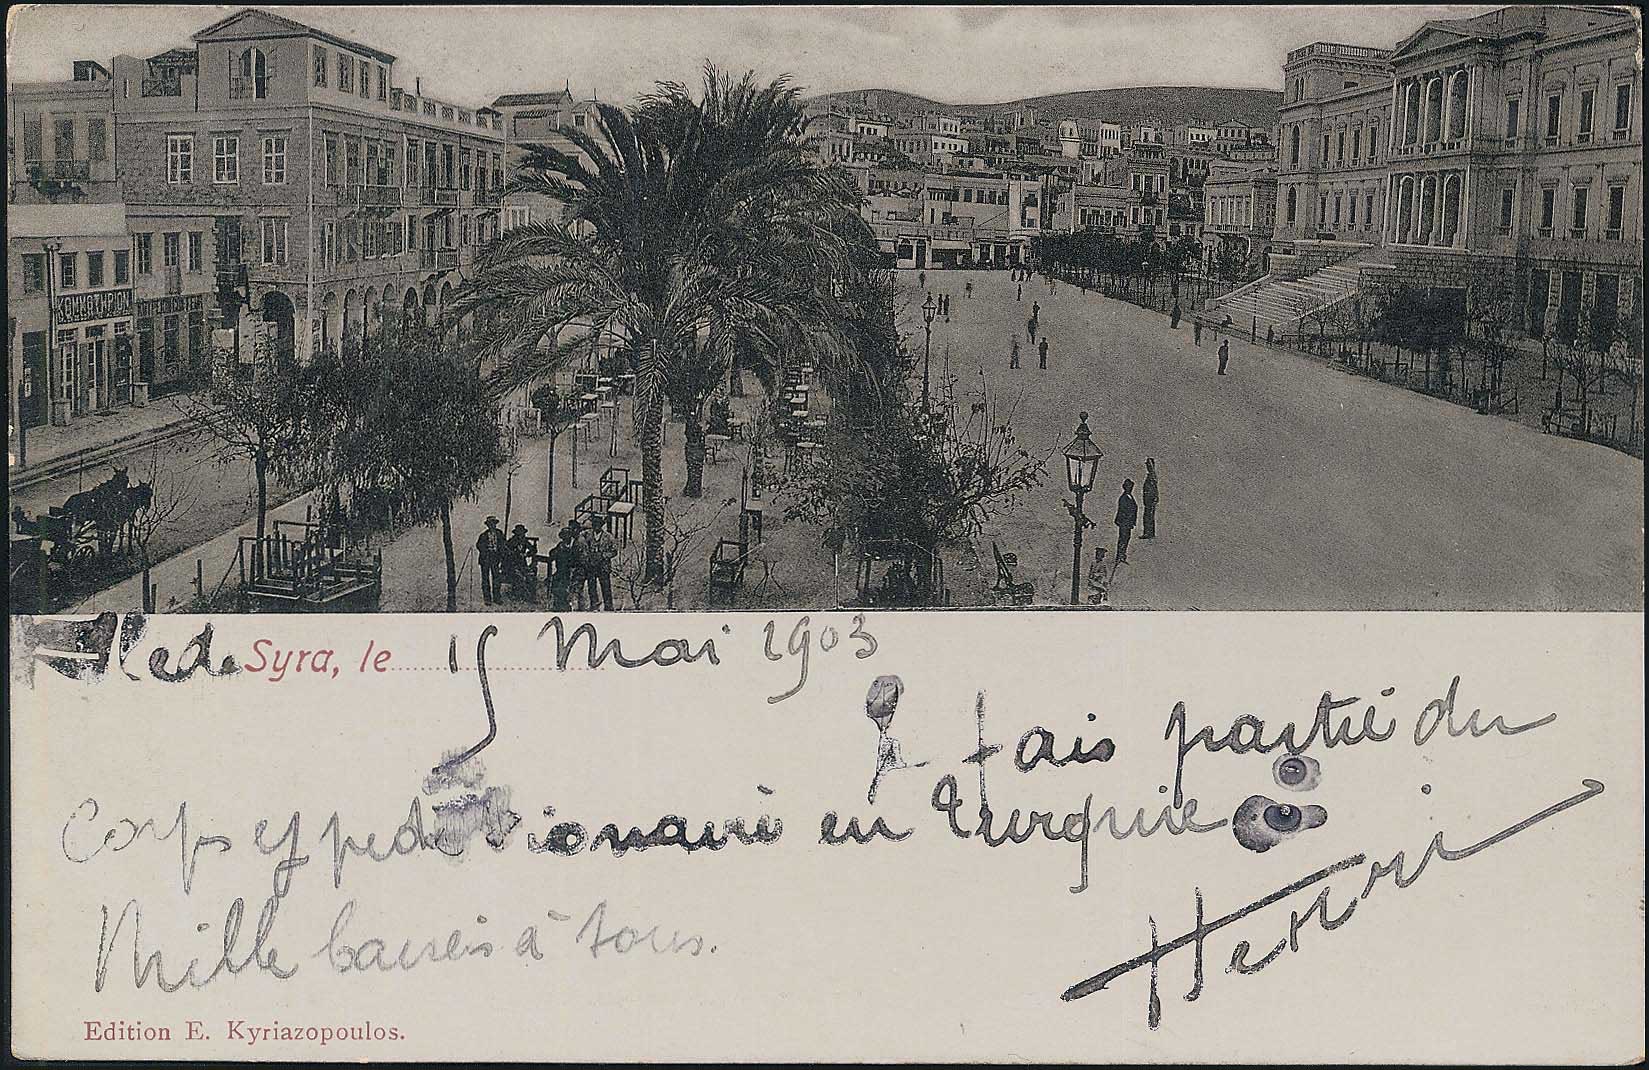 ΚΟΜΜΩΤΗΡΙΟΝ
Ile de Syra, le 15 Mai 1903
Je fais partie du
Corps expeditionaire en Turquie
Mille baisers à tous.
Henri
Edition E. Kyriazopoulos.